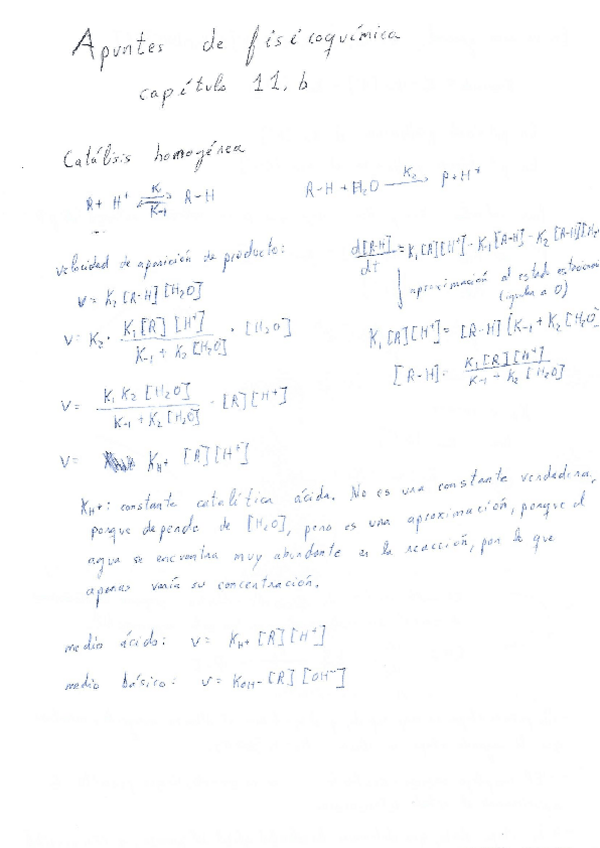 Apuntes de fisicoquímica
capítulo 11.b
Catálisis homogénea
R + H⁺ ⇌ R-H K₁ K₋₁
R-H + H₂O —K₂→ P + H⁺
velocidad de aparición de producto:
v = K₂ [R-H] [H₂O]
v = K₂ · K₁[R] [H⁺] / K₋₁ + K₂ [H₂O] · [H₂O]
v = K₁ K₂ [H₂O] / K₋₁ + K₂ [H₂O] · [R] [H⁺]
v = K_H⁺ [R] [H⁺]
d[R-H]/dt = K₁ [R] [H⁺] - K₋₁ [R-H] - K₂ [R-H] [H₂
↓ aproximación al estado estaciona
(iguala a 0)
K₁ [R] [H⁺] = [R-H] (K₋₁ + K₂ [H₂O]
[R-H] = K₁ [R] [H⁺] / K₋₁ + K₂ [H₂O]
K_H⁺: constante catalítica ácida. No es una constante verdadera,
porque depende de [H₂O], pero es una aproximación, porque el
agua se encuentra muy abundante en la reacción, por lo que
apenas varía su concentración.
medio ácido: v = K_H⁺ [R] [H⁺]
medio básico: v = K_OH⁻ [R] [OH⁻]